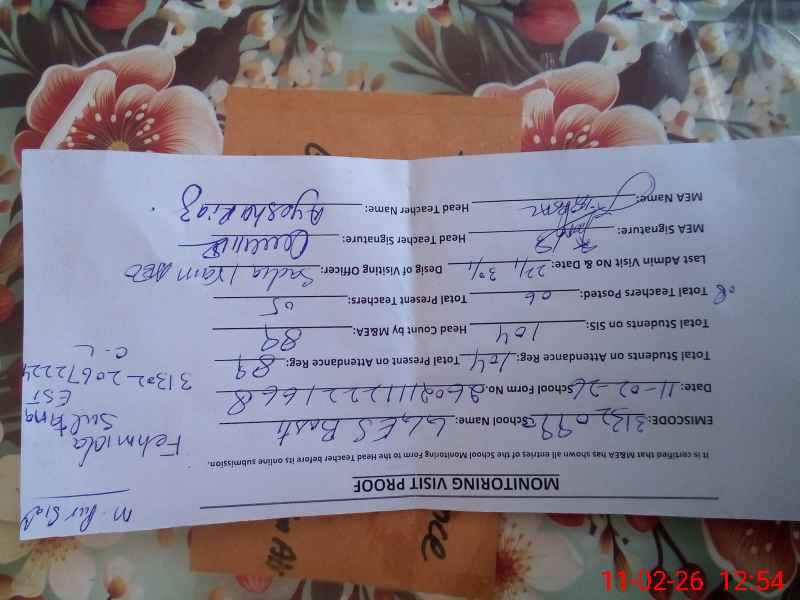 MONITORING VISIT PROOF
It is certified that M&EA has shown all entries of the School Monitoring Form to the Head Teacher before its online submission.
EMISCODE: School Name: GGES Basti
Date: 11-02-26 School Form No. 2602111222166 8
Total Students on Attendance Reg: 104 Total Present on Attendance Reg: 89
Total Students on SIS: 104 Head Count by M&EA: 89
Total Teachers Posted: 06 Total Present Teachers: 05
Last Admin Visit No & Date: 22/1 30/1 Desig of Visiting Officer: Sadia AEO
MEA Signature: Head Teacher Signature:
MEA Name: Head Teacher Name: Ayesha Riaz
Fehmida
Sultana
EST
31302-20672224
C.L
11-02-26 12:54